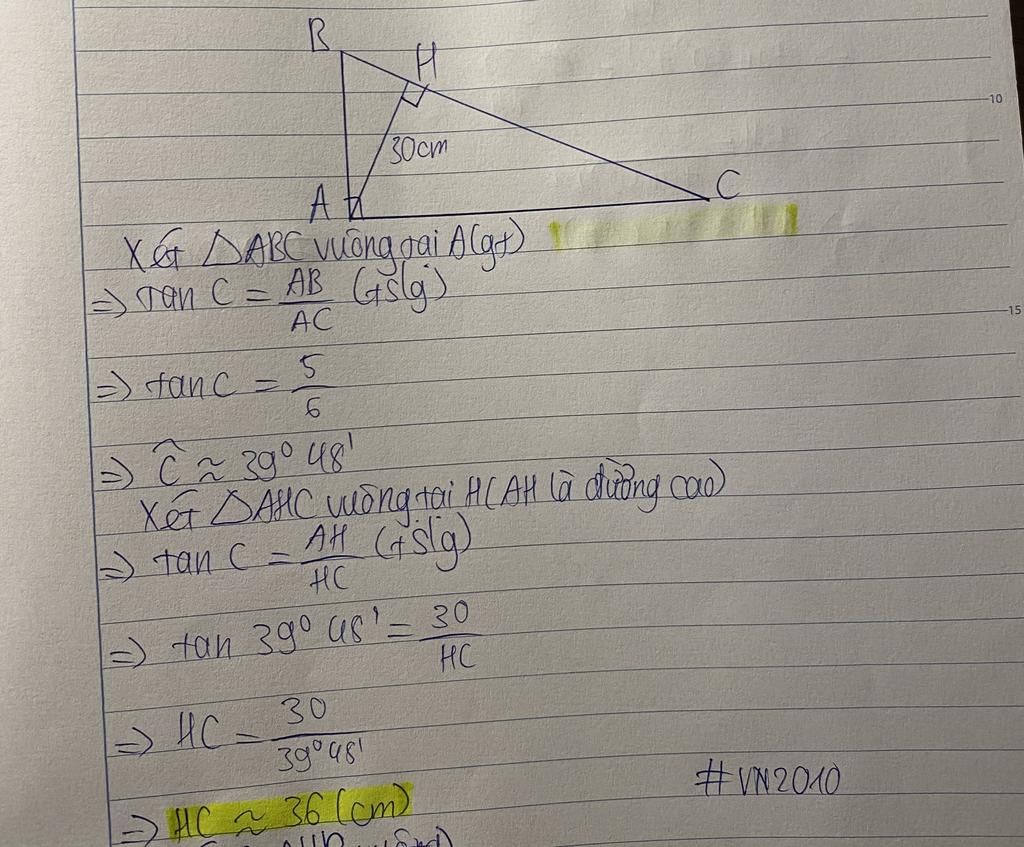 B
H
10
30cm
A
C
Xét △ABC vuông tại A(gt)
=> tan C = AB/AC (tslg)
15
=> tan C = 5/6
=> Ĉ ≈ 39° 48'
Xét △AHC vuông tại H(AH là đường cao)
=> tan C = AH/HC (tslg)
=> tan 39° 48' = 30/HC
=> HC = 30/39°48'
#VN2010
=> HC ≈ 36 (cm)